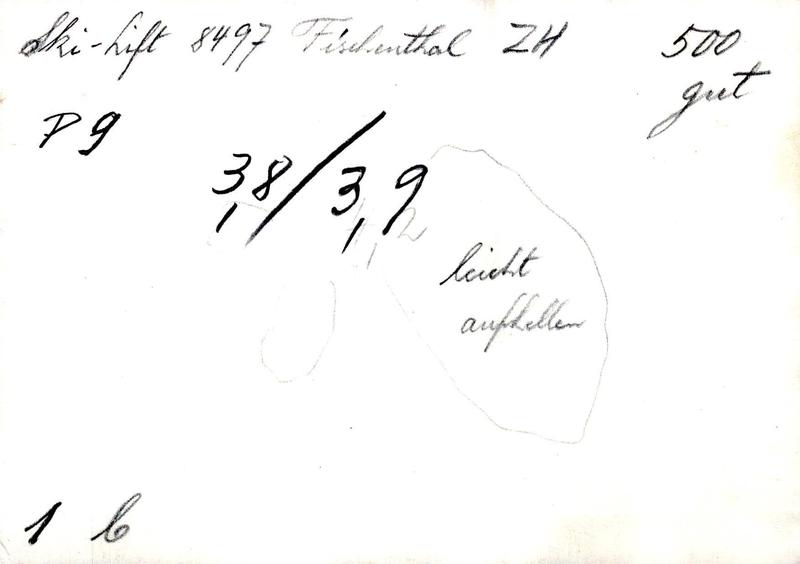 Ski-Lift 8497 Fischenthal ZH 500
gut
P 9
3,8/3,9
4,2
leicht
aufhellen
1 6